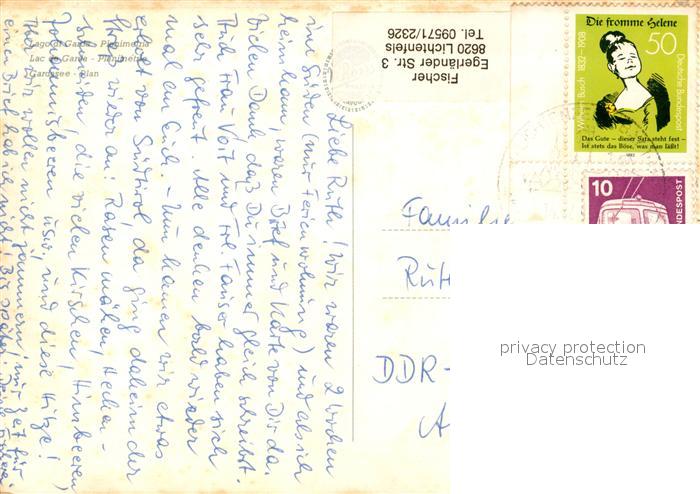 Lago di Garda - Planimetria
Lac de Garde - Planimetrie
Gardasee - Plan
Fischer
Egerländer Str. 3
8620 Lichtenfels
Tel. 09571/2326
Die fromme Helene
50
Wilhelm Busch 1832-1908
Deutsche Bundespost
Das Gute - dieser Satz steht fest -
Ist stets das Böse, was man läßt!
10
BUNDESPOST
Liebe Ruth! Wir waren 2 Wochen
im Süden (nur Ferienwohnung) und als ich
heim kam, waren Brief und Karte von Dir da.
Vielen Dank, daß Du immer gleich schreibst.
Frau Voit und Frl. Fauser haben sich
sehr gefreut. Alle denken bald wieder
mal an Euch. - Nun haben wir etwas
erholt von Südtirol, da ging daheim der
wieder an: Rasen mähen, Hecken
schneiden, die vielen Kirschen, Himbeeren
Johannisbeeren usw. und diese Hitze!
wir wollen nicht jammern! nur Zeit für
einen Brief hab ich nicht. Bis später.
Familie
Ruth
DDR-
A
privacy protection
Datenschutz